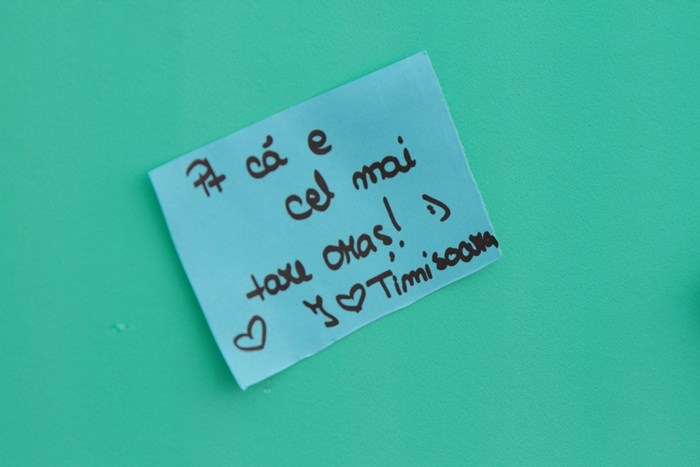 că e
cel mai
tare oraș! :)
I ♡ Timisoara
♡